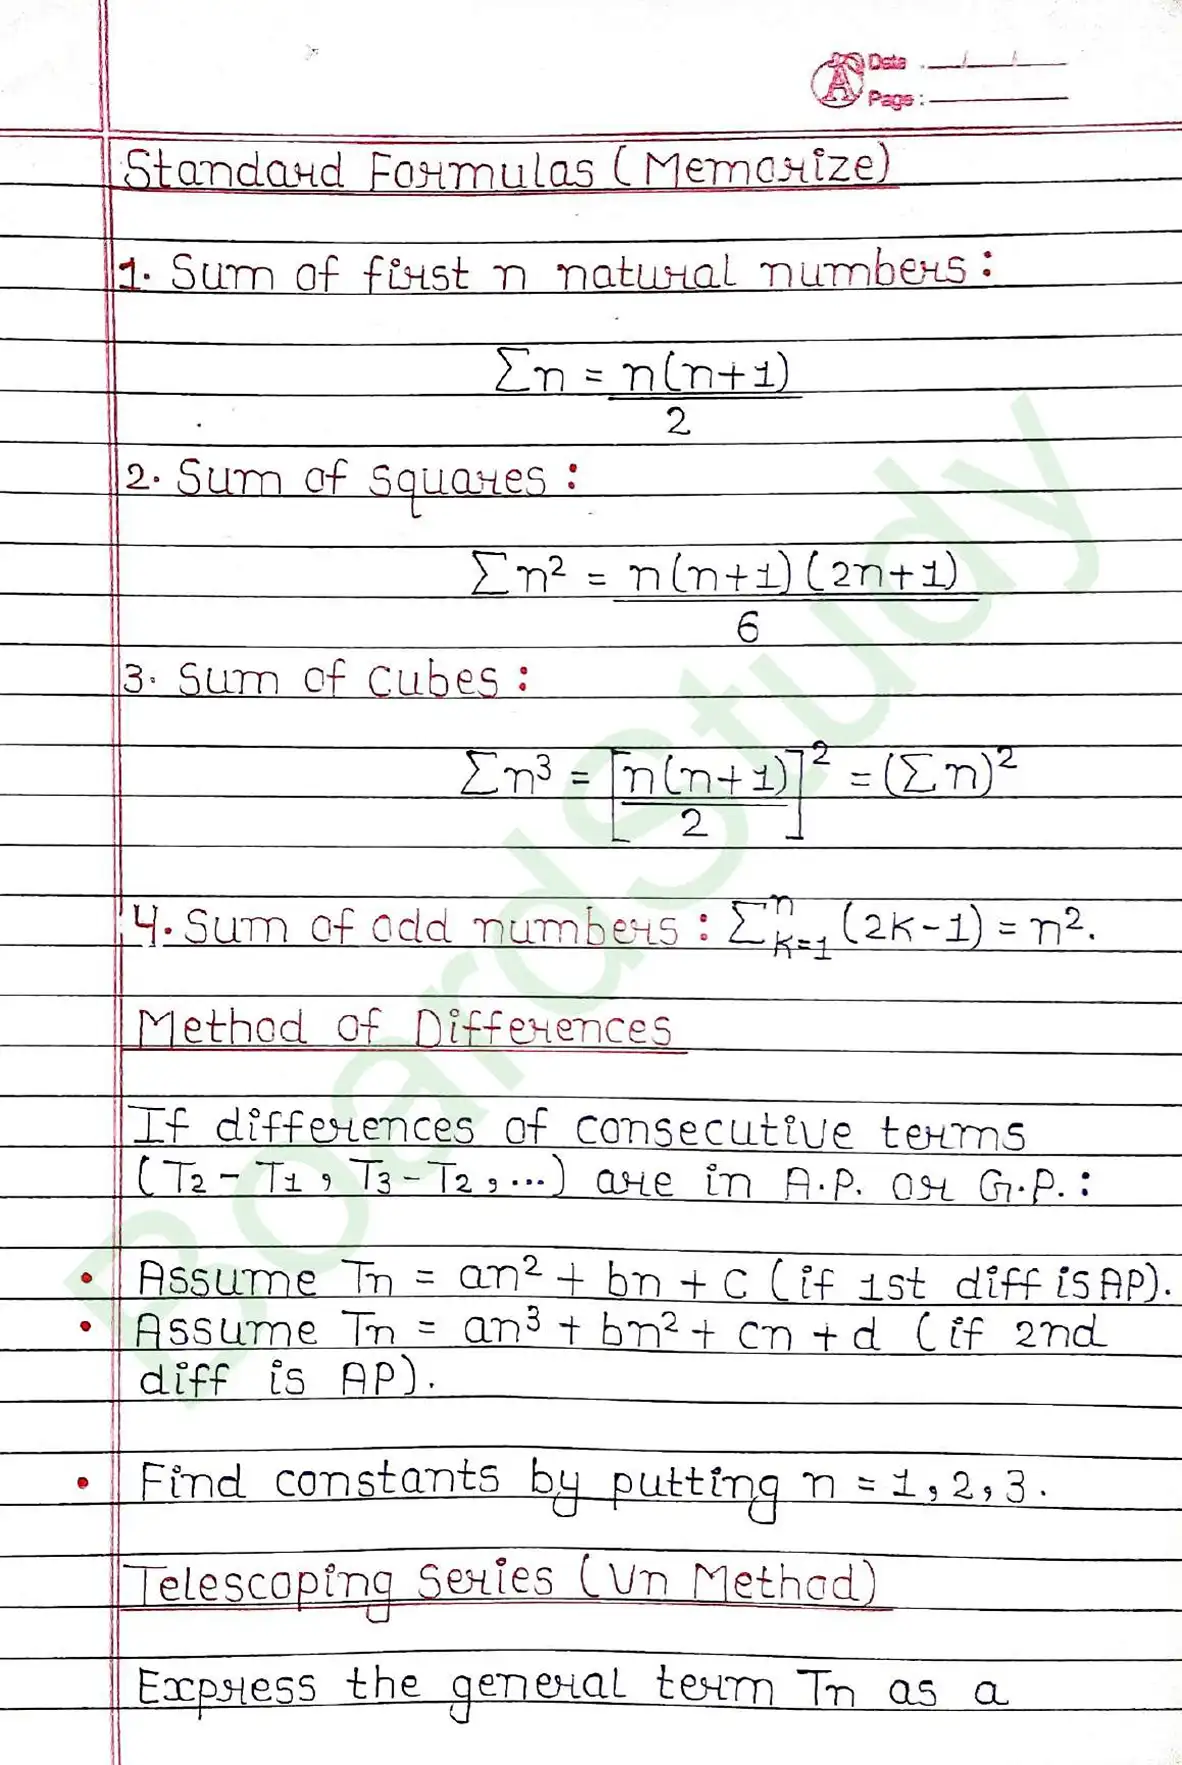 Date : __/__/__
Page :
Standard Formulas (Memorize)
1. Sum of first n natural numbers :
Σn = n(n+1)
2
2. Sum of squares :
Σn² = n(n+1)(2n+1)
6
3. Sum of cubes :
Σn³ = [n(n+1)]² = (Σn)²
2
4. Sum of odd numbers : Σⁿₖ₌₁ (2K-1) = n².
Method of Differences
If differences of consecutive terms
(T₂ - T₁, T₃ - T₂, ...) are in A.P. or G.P. :
• Assume Tn = an² + bn + c (if 1st diff is AP).
• Assume Tn = an³ + bn² + cn + d (if 2nd
diff is AP).
• Find constants by putting n = 1, 2, 3.
Telescoping Series (Vn Method)
Express the general term Tn as a
BoardStudy